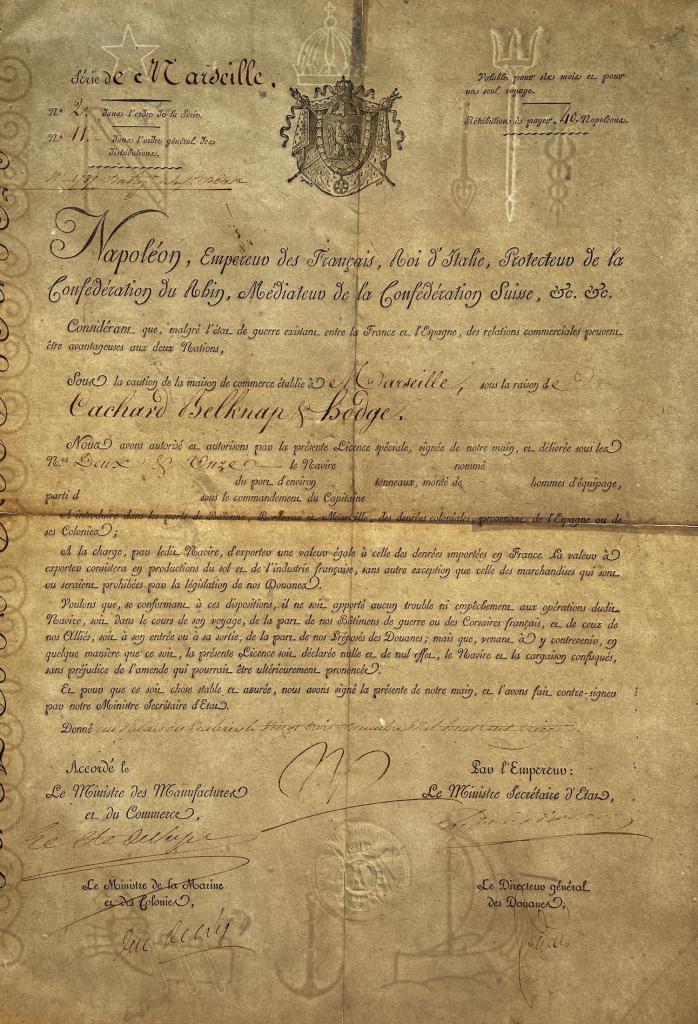 Série de Marseille.
N.º 2. dans l'ordre de la Série.
N.º 11. dans l'ordre général des
distributions.
Valable pour six mois et pour
un seul voyage.
Rétribution à payer, 40. Napoléons.
Napoléon, Empereur des Français, Roi d'Italie, Protecteur de la
Confédération du Rhin, Médiateur de la Confédération Suisse, &c. &c.
Considérant que, malgré l'état de guerre existant entre la France et l'Espagne, des relations commerciales peuvent
être avantageuses aux deux Nations,
Sous la caution de la maison de commerce établie à Marseille, sous la raison de
Cachard Belknap & hodge.
Nous avons autorisé et autorisons par la présente Licence spéciale, signée de notre main, et délivrée sous les
N.ºs Deux & Onze le Navire nommé
du port d'environ tonneaux, monté de hommes d'équipage,
parti d sous le commandement du Capitaine
A introduire dans les ports de Baïonne, Bordeaux et Marseille, des denrées coloniales, provenant de l'Espagne ou de
ses Colonies;
A la charge, par ledit Navire, d'exporter une valeur égale à celle des denrées importées en France. La valeur à
exporter consistera en productions du sol et de l'industrie française, sans autre exception que celle des marchandises qui sont
ou seraient prohibées par la législation de nos Douanes.
Voulons que, se conformant à ces dispositions, il ne soit apporté aucun trouble ni empêchement aux opérations dudit
Navire, soit dans le cours de son voyage, de la part de nos Bâtimens de guerre ou des Corsaires français, et de ceux de
nos Alliés, soit à son entrée ou à sa sortie, de la part de nos Préposés des Douanes; mais que, venant à y contrevenir, en
quelque manière que ce soit, la présente Licence soit déclarée nulle et de nul effet, le Navire et la cargaison confisqués,
sans préjudice de l'amende qui pourrait être ultérieurement prononcée.
Et pour que ce soit chose stable et assurée, nous avons signé la présente de notre main, et l'avons fait contre-signer
par notre Ministre Secrétaire d'Etat.
Donné au Palais des Tuileries le Vingt trois
Accordé le
Le Ministre des Manufactures
et du Commerce,
Par l'Empereur:
Le Ministre Secrétaire d'Etat,
Le Ministre de la Marine
et des Colonies,
Le Directeur général
des Douanes,